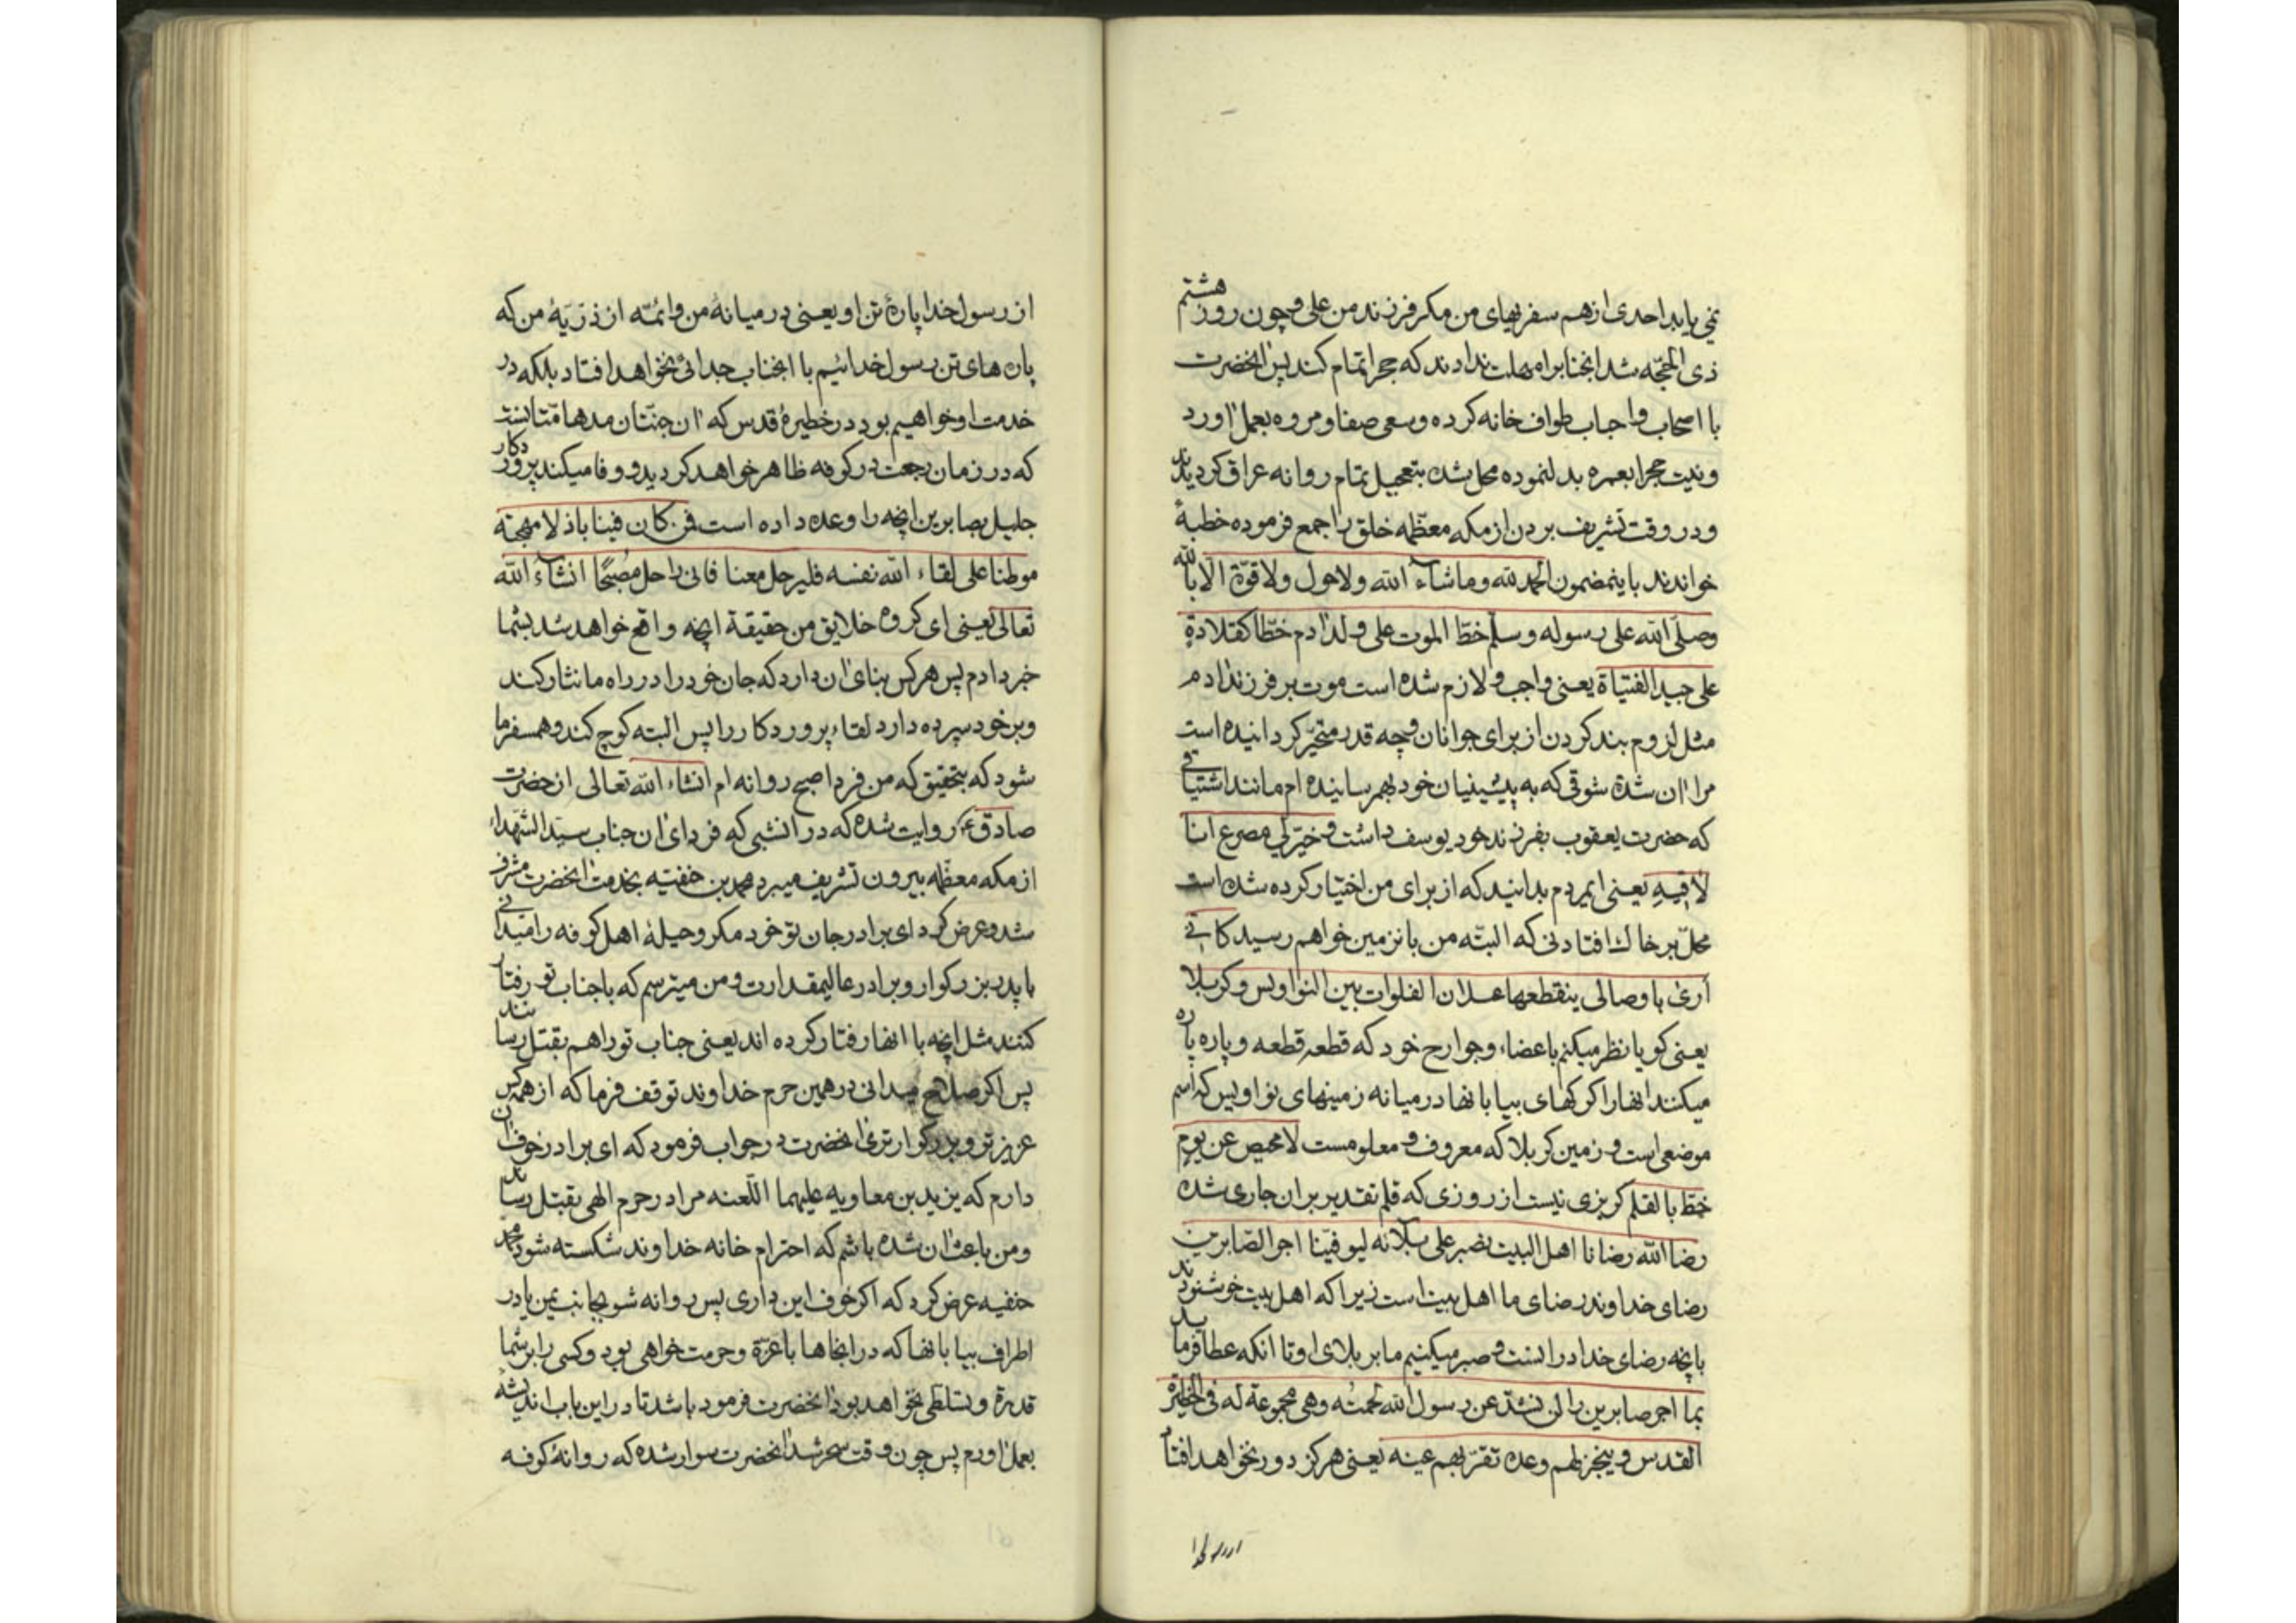 نمی یابد احدی از هم سفریهای من مکر فرزند من علی و چون روز هشتم
ذی الحجّه شد انجنابرا مهلت ندادند که حجرا تمام کند پس انحضرت
با اصحاب واجاب طواف خانه کرده و سعی صفا و مروه بعمل اورد
و نیت حجرا بعمره بدل نموده محل شده بتعجیل تمام روانه عراق کردیدند
و در وقت تشریف بردن از مکه معظّمه خلق را جمع فرموده خطبهٔ
خواندند باینمضمون الحمد لله وماشآء الله ولاحول ولاقوّة الّا بالله
وصلّی الله علی رسوله وسلّم خطّ الموت علی ولد ادم خطّا کقلادة
علی جید الفتیاة یعنی واجب و لازم شده است موت بر فرزند ادم
مثل لزوم بند کردن از برای جوانان و چه قدر متحیّر کردانیده است
مرا ان شدة شوقی که به پیشینیان خود بهمرسانیده ام مانند اشتیاقی
که حضرت یعقوب بفرزند خود یوسف داشت وخیّر لی مصرع انا
لاقیه یعنی ایمردم بدانید که از برای من اختیار کرده شده است
محلّ بر خاك افتادنی که البتّه من بانزمین خواهم رسید کانّی
اری باوصالی ینقطعها عسلان الفلوات بین النواویس وکربلا
یعنی کویا نظر میکنم باعضاء وجوارح خود که قطعه قطعه و پاره پاره
میکنند انهارا کرکهای بیابانها در میانه زمینهای نواویس که اسم
موضعی است و زمین کربلا که معروف و معلومست لامحیص عن یوم
خطّ بالقلم کریزی نیست از روزی که قلم تقدیر بران جاری شده
رضا الله رضانا اهل البیت نصبر علی بلآئه لیوفّینا اجر الصّابرین
رضای خداوند رضای ما اهل بیت است زیرا که اهل بیت خوشنودند
بانچه رضای خدا در انست و صبر میکنیم ما بر بلای او تا انکه عطا فرماید
بما اجر صابرین را لن تشذ عن رسول الله لحمته وهی مجموعة له فی الخطیرة
القدس وینجز لهم وعده تقرّ بهم عینه یعنی هرکز دور نخواهد افتاد
از رسول خدا
از رسول خدا پارهٔ تن او یعنی در میانهٔ من وائمّه از ذرّیهٔ من که
پاره های تن رسول خدائیم با انجناب جدائی نخواهد افتاد بلکه در
خدمت او خواهیم بود در خطیرهٔ قدس که ان جنّتان مدهامّتا نست
که در زمان رجعت در کوفه ظاهر خواهد کردید و وفا میکند پروردکار
جلیل بصابرین انچه را وعده داده است فمن کان فینا باذلا مهجته
موطنا علی لقاء الله نفسه فلیرحل معنا فانی راحل مصبحًا انشآء الله
تعالی یعنی ای کروه خلایق من حقیقة انچه واقع خواهد شد بشما
خبر دادم پس هرکس بنای ان دارد که جان خود را در راه ما نثار کند
وبر خود سپرده دارد لقاء پروردکار را پس البته کوچ کند و همسفر ما
شود که بتحقیق که من فردا صبح روانه ام انشاء الله تعالی از حضرت
صادق ع روایت شده که در انشبی که فردای ان جناب سیّد الشّهداء
از مکه معظّمه بیرون تشریف میبرد محمد بن حنفیّه بخدمت انحضرت مشرف
شد وعرض کرد ای برادر جان تو خود مکر وحیلهٔ اهل کوفه را میدانی
با پدر بزرکوار و برادر عالیمقدارت و من میترسم که با جناب تو رفتار
کنند مثل انچه با انها رفتار کرده اند یعنی جناب تو را هم بقتل رسانند
پس اکر صلاح میدانی در همین حرم خداوند توقف فرما که از همه کس
عزیزتر و بزرکوارتری انحضرت در جواب فرمود که ای برادر خوف ان
دارم که یزید بن معاویه علیهما اللّعنه مرا در حرم الهی بقتل رساند
ومن باعث ان شده باشم که احترام خانه خداوند شکسته شود محمد
حنفیه عرض کرد که اکر خوف این داری پس روانه شو بجانب یمن یا در
اطراف بیابانها که در انجاها با عزّة وحرمت خواهی بود وکسی را بر شما
قدرة وتسلطی نخواهد بود انحضرت فرمود باشد تا در این باب اندیشهٔ
بعمل اورم پس چون وقت سحر شد انحضرت سوار شده که روانهٔ کوفه